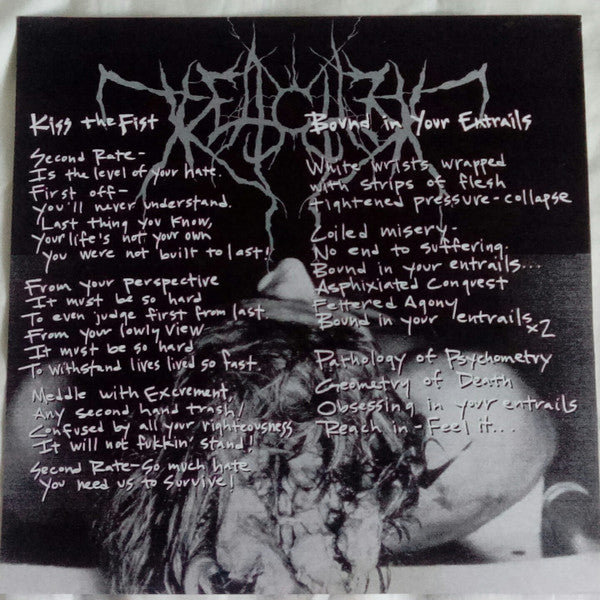 Kiss the Fist
Second Rate-
Is the level of your hate.
First off-
You'll never understand.
Last thing you know,
Your life's not your own
You were not built to last!
From your perspective
It must be so hard
To even judge first from last.
From your lowly view
It must be so hard
To withstand lives lived so fast.
Meddle with Excrement,
Any second hand trash!
Confused by all your righteousness
It will not fukkin' stand!
Second Rate-So much hate
You need us to Survive!
Bound in Your Entrails
White wrists wrapped
with strips of flesh
tightened pressure-collapse
Coiled misery-
No end to suffering.
Bound in your entrails...
Asphixiated Conquest
Fettered Agony
Bound in your entrails x2
Pathology of Psychometry
Geometry of Death
Obsessing in your entrails
Reach in-Feel it...